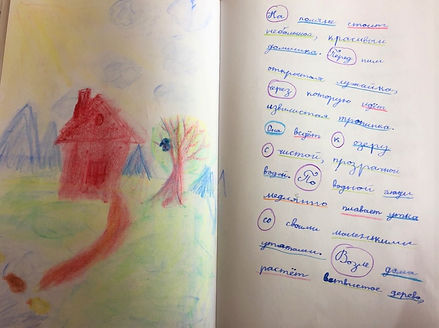 На поляне стоит
небольшой, красивый
домишка. Перед ним
открытая лужайка,
через которую идёт
извилистая тропинка.
Она ведёт к озеру
с чистой, прозрачной
водой. По водной глади
медленно плавает утка
со своими маленькими
утятами. Возле дома
растёт ветвистое дерево,